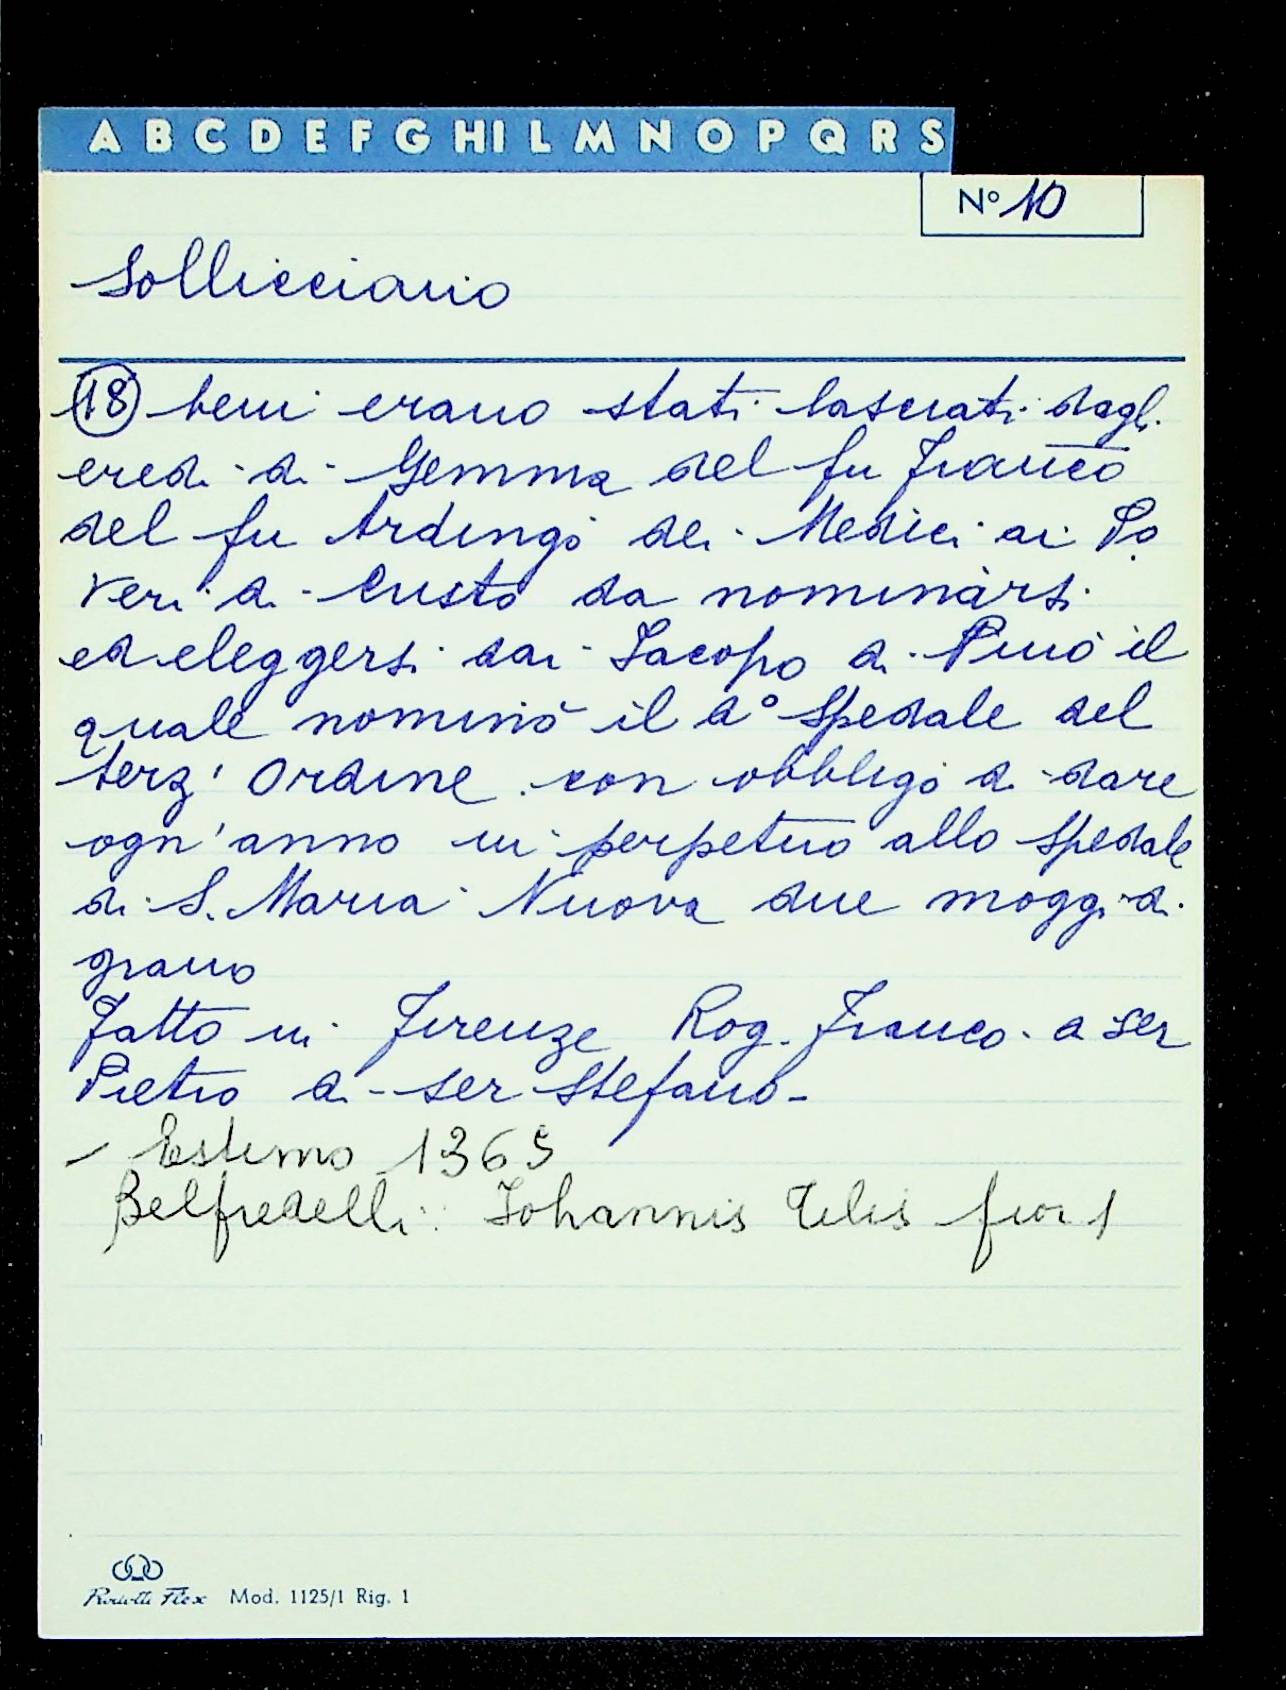 A B C D E F G HI L M N O P Q R S
Nº 10
Sollicciano
18 beni erano stati lasciati dagli
eredi di Gemma del fu Franco
del fu Ardingo dei Medici ai Po
veri di Cristo da nominarsi
ed eleggersi dai Iacopo di Pino il
quale nominò il dº spedale del
terz' Ordine con obbligo di dare
ogn'anno in perpetuo allo spedale
di S. Maria Nuova due moggi di
grano
Fatto in Firenze Rog. Franco. a ser
Pietro di ser Stefano -
- Estimo 1365
Belfredelli: Iohannis Telis fior 1
Flex Mod. 1125/1 Rig. 1